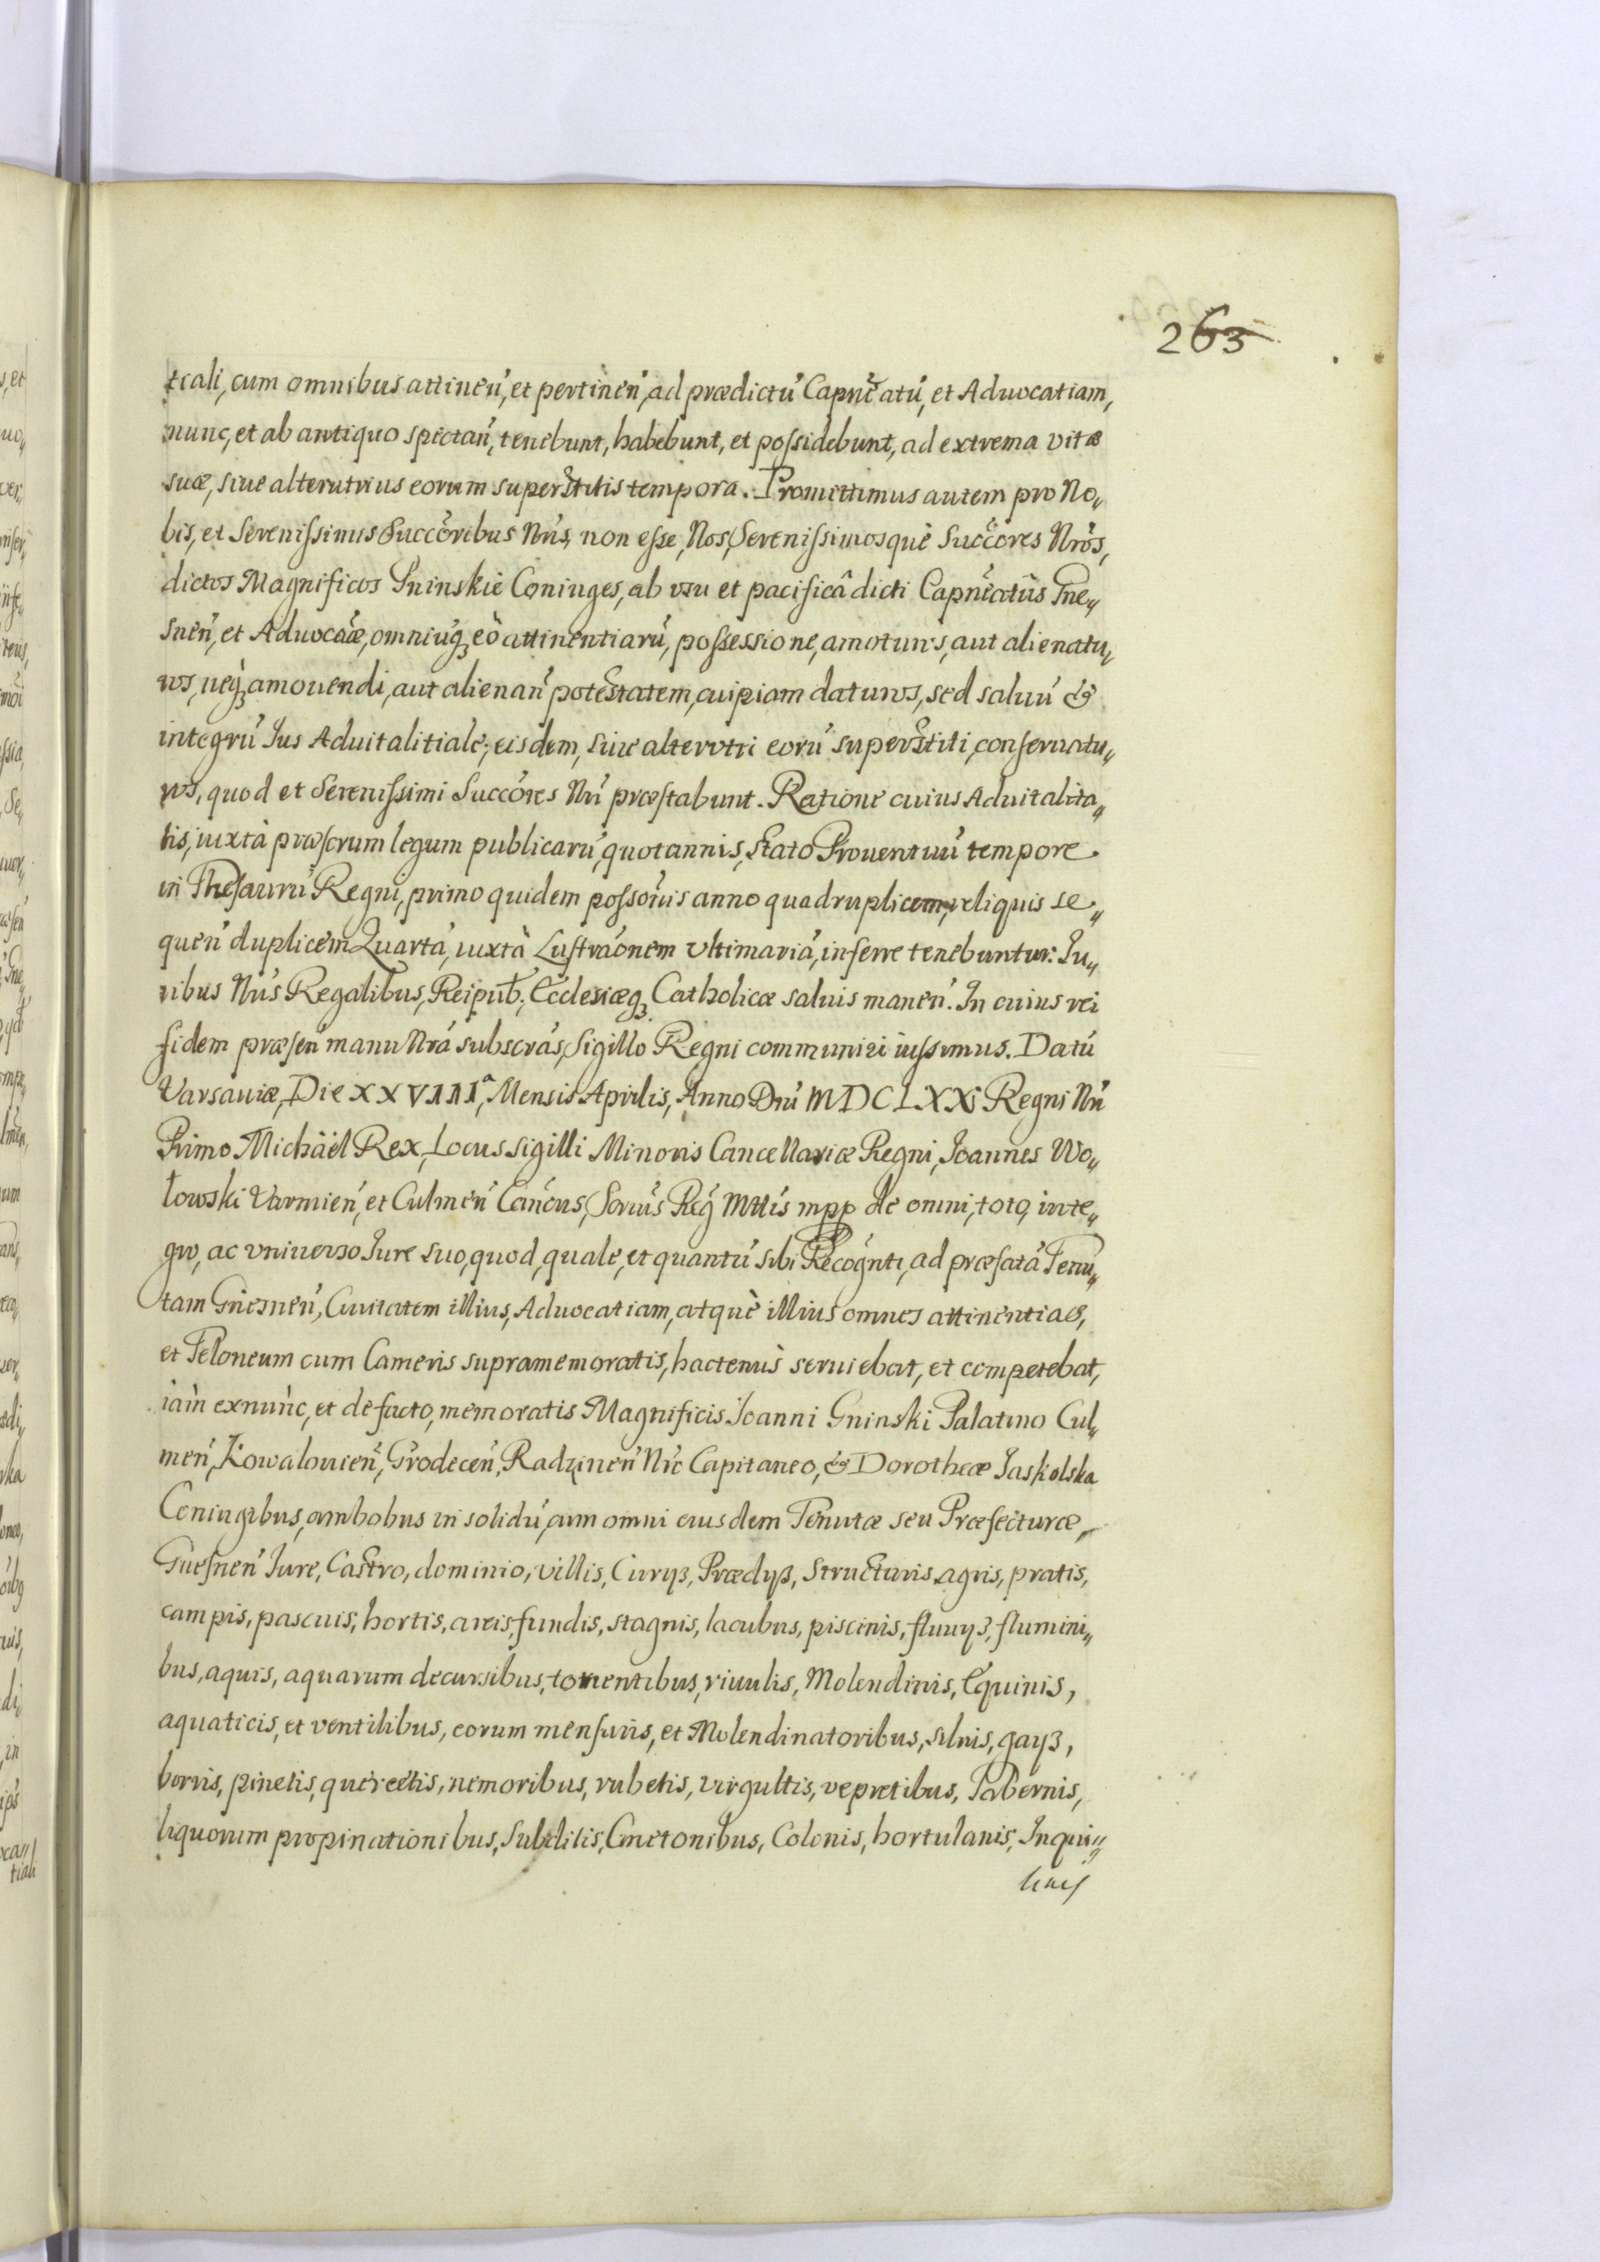 263
tiali, cum omnibus attinen̄, et pertinen̄, ad prædictū Capnēatū, et Aduocatiam,
nunc, et ab antiquo spectan̄, tenebunt, habebunt, et possidebunt, ad extrema vitæ
suæ, siue alterutrius eorum superstitis tempora. Promittimus autem pro No„
bis, et Serenissimis Succōribus Nr̄is, non esse, Nos, Serenissimosquè Succōres Nr̄os,
dictos Magnificos Gninskie Coniuges, ab vsu et pacificâ dicti Capnēatûs Gne„
snen̄, et Aduocāæ, omniuq₃ eò attinentiarū, possessione, amoturos, aut alienatu„
ros, neq₃ amouendi, aut alienan̄ potestatem, cuipiam daturos, sed saluū &
integrū Ius Aduitalitiale, eisdem, siue alterutri eorū superstiti, conseruatu„
ros, quod et Serenissimi Succōres Nr̄i præstabunt. Ratione cuius Aduitalita„
tis, iuxtà præscrum legum publicarū, quotannis, stato Prouentuū tempore
in Thesaurū Regni, primo quidem possor̄is anno quadruplicem, reliquis se„
quen̄ duplicem Quartā, iuxtà Lustrāonem vltimariā, inferre tenebuntur. Iu„
ribus Nr̄is Regalibus, Reipub̄. Ecclesiæq₃ Catholicæ saluis manen̄. In cuius rei
fidem præsen̄ manu Nr̄a subscrās, Sigillo Regni communiri iussimus. Datū
Varsauiæ, Die XXVIIIᵃ, Mensis Aprilis, Anno Dn̄i MDCLXX Regni Nr̄i
Primo Michäel Rex, Locus sigilli Minoris Cancellariæ Regni, Joannes Wo„
łowski Varmien̄, et Culmen̄ Can̄cus, Secrius Reg̃ Mttis mpp de omni, toto, inte„
gro, ac vniuerso Iure suo, quod, quale, et quantū sibi Recōgnti, ad præfatā Tenu„
tam Gnesnen̄, Ciuitatem illius, Aduocatiam, atquè illius omnes attinentias,
et Teloneum cum Cameris supramemoratis, hactenùs seruiebat, et competebat,
iàm exnùnc, et de facto, memoratis Magnificis Joanni Gninski Palatino Cul„
men̄, Kowalouien̄, Grodecen̄, Radzinen̄ Nr̄o Capitaneo, & Dorotheæ Jaskolska
Coniugibus, ambobus in solidū, cum omni eiusdem Tenutæ seu Præfecturæ
Gnesnen̄ Iure, Castro, dominio, villis, Curyß, Prædyß, structuris agris, pratis,
campis, pascuis, hortis, areis, fundis, stagnis, lacubus, piscinis, fluuyß, flumini„
bus, aquis, aquarum decursibus, torrentibus, riuulis, Molendinis, Equinis,
aquaticis, et ventilibus, eorum mensuris, et Molendinatoribus, siluis, gayß,
borris, pinetis, quercetis, nemoribus, rubetis, virgultis, vepretibus, Tabernis,
liquorum propinationibus, Subditis, Cmetonibus, Colonis, hortulanis, Inqui„
linis